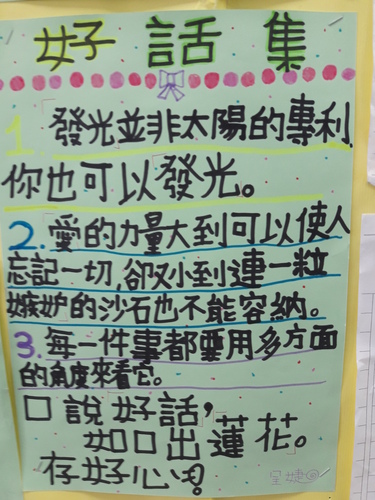 好話集
1 發光並非太陽的專利
你也可以發光。
2.愛的力量大到可以使人
忘記一切,卻又小到連一粒
嫉妒的沙石也不能容納。
3.每一件事都要用多方面
的角度來看它。
口說好話,
如口出蓮花。
存好心田